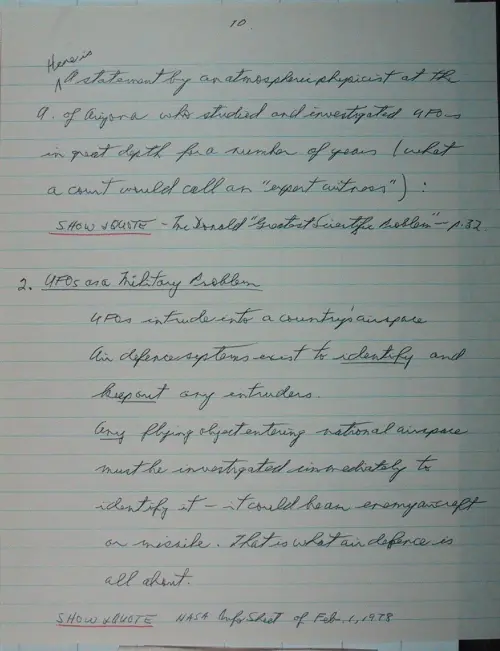 10
Here is
A statement by an atmospheric physicist at the
U. of Arizona who studied and investigated UFOs
in great depth for a number of years (what
a court would call an "expert witness") :
SHOW & QUOTE - McDonald "Greatest Scientific Problem" - p.32
2. UFOs as a Military Problem
UFOs intrude into a country's airspace
Air defence systems exist to identify and
keep out any intruders.
Any flying object entering national airspace
must be investigated immediately to
identify it - it could be an enemy aircraft
or missile. That is what air defence is
all about.
SHOW & QUOTE NASA Info Sheet of Feb. 1, 1978